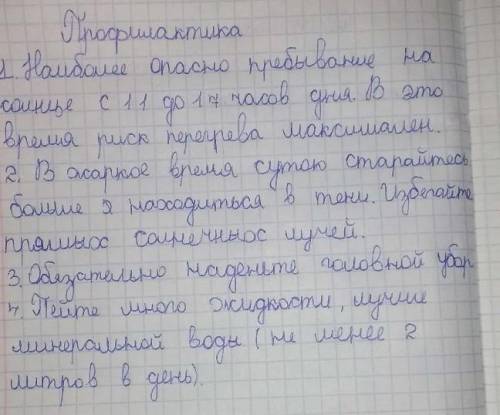 Профилактика
1. Наиболее опасно пребывание на
солнце с 11 до 17 часов дня. В это
время риск перегрева максимален.
2. В жаркое время суток старайтесь
больше находиться в тени. Избегайте
прямых солнечных лучей.
3. Обязательно наденьте головной убор
4. Пейте много жидкости, лучше
минеральной воды (не менее 2
литров в день).